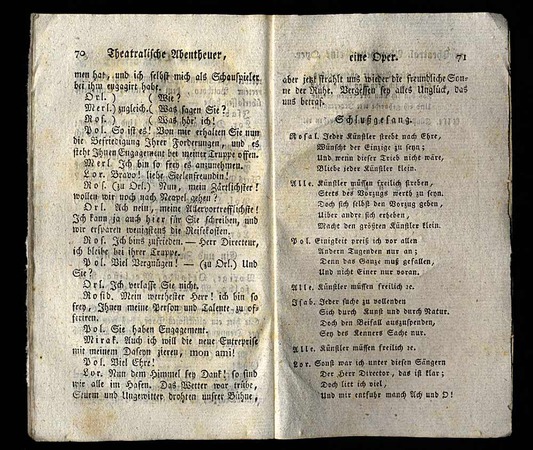 70 Theatralische Abentheuer,
men hat, und ich selbst mich als Schauspieler
bei ihm engagirt habe.
Orl. ) ( Wie?
Merl.) zugleich. ( Was sagen Sie?
Ros. ) ( Was hör' ich!
Pol. So ist es! Von mir erhalten Sie nun
die Befriedigung Ihrer Forderungen, und es
steht Ihnen Engagement bei meiner Truppe offen.
Merl. Ich bin so frei es anzunehmen.
Lor. Bravo! liebe Seelenfreundin!
Ros. (zu Orl.) Nun, mein Zärtlichster!
wollen wir noch nach Neapel gehen?
Orl. Ach nein, meine Allervortrefflichste!
Ich kann ja auch hier für Sie schreiben, und
wir ersparen wenigstens die Reisekosten.
Ros. Ich bins zufrieden. — Herr Directeur,
ich bleibe bei ihrer Truppe.
Pol. Viel Vergnügen! — (zu Orl.) Und
Sie?
Orl. Ich verlasse Sie nicht.
Rosib. Mein werthester Herr! ich bin so
frey, Ihnen meine Person und Talente zu of-
feriren.
Pol. Sie haben Engagement.
Mirak. Auch ich will die neue Entreprise
mit meinem Daseyn zieren, mon ami!
Pol. Viel Ehre!
Lor. Nun dem Himmel sey Dank! so sind
wir alle im Hafen. Das Wetter war trübe,
Sturm und Ungewitter drohten unsrer Bühne,
eine Oper. 71
aber jetzt strahlt uns wieder die freundliche Son-
ne der Ruhe. Vergessen sey alles Unglück, das
uns betraf.
Schlußgesang.
Rosal. Jeder Künstler strebt nach Ehre,
Wünscht der Einzige zu seyn;
Und wenn dieser Trieb nicht wäre,
Bliebe jeder Künstler klein.
Alle. Künstler müssen freilich streben,
Stets des Vorzugs werth zu seyn.
Doch sich selbst den Vorzug geben,
Ueber andre sich erheben,
Macht den größten Künstler klein.
Pol. Einigkeit preiß ich vor allen
Andern Tugenden nur an;
Denn das Ganze muß gefallen,
Und nicht Einer nur voran.
Alle. Künstler müssen freilich ꝛc.
Isab. Jeder suche zu vollenden
Sich durch Kunst und durch Natur.
Doch den Beifall auszuspenden,
Sey des Kenners Sache nur.
Alle. Künstler müssen freilich ꝛc.
Lor. Sonst war ich unter diesen Sängern
Der Herr Director, das ist klar;
Doch litt ich viel,
Und mir entfuhr manch Ach und O!